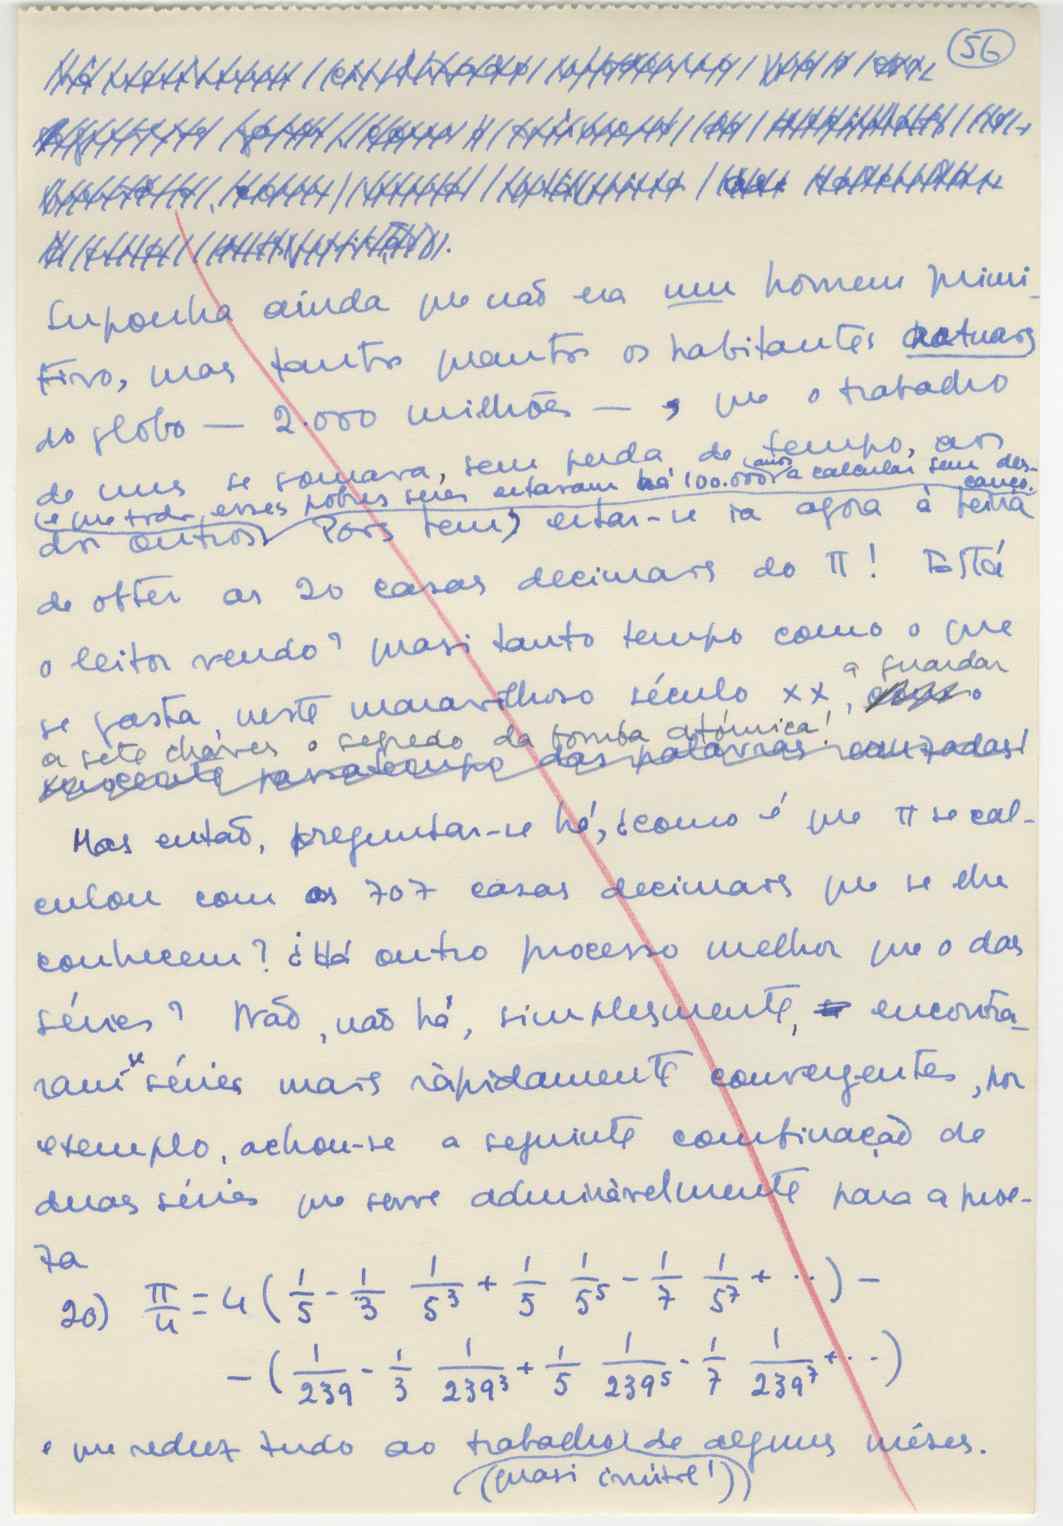 56
Suponha ainda que não era um homem primi-
tivo, mas tantos quantos os habitantes actuais
do globo — 2.000 milhões — , que o trabalho
de uns se somava, sem perda de tempo, aos
(e que todos esses pobres seres estavam há 100.000 anos a calcular sem des-
canço.
dos outros) Pois bem, estar-se ia agora à beira
de obter as 20 casas decimais do π! Está
o leitor vendo? quasi tanto tempo como o que
se gasta, neste maravilhoso século XX, a guardar
a sete chaves o segredo da bomba atómica!
inocente passatempo das palavras cruzadas!
Mas então, preguntar-se há, ¿como é que π se cal-
culou com as 707 casas decimais que se lhe
conhecem? ¿Há outro processo melhor que o das
séries? Não, não há, simplesmente, encontra-
ram-se séries mais ràpidamente convergentes, por
exemplo, achou-se a seguinte combinação de
duas séries que serve admiràvelmente para a proe-
za
20) π/4 = 4 (1/5 - 1/3 1/5³ + 1/5 1/5⁵ - 1/7 1/5⁷ + ...) -
- (1/239 - 1/3 1/239³ + 1/5 1/239⁵ - 1/7 1/239⁷ + ...)
e que reduz tudo ao trabalho de alguns mêses.
(quasi inútil!)